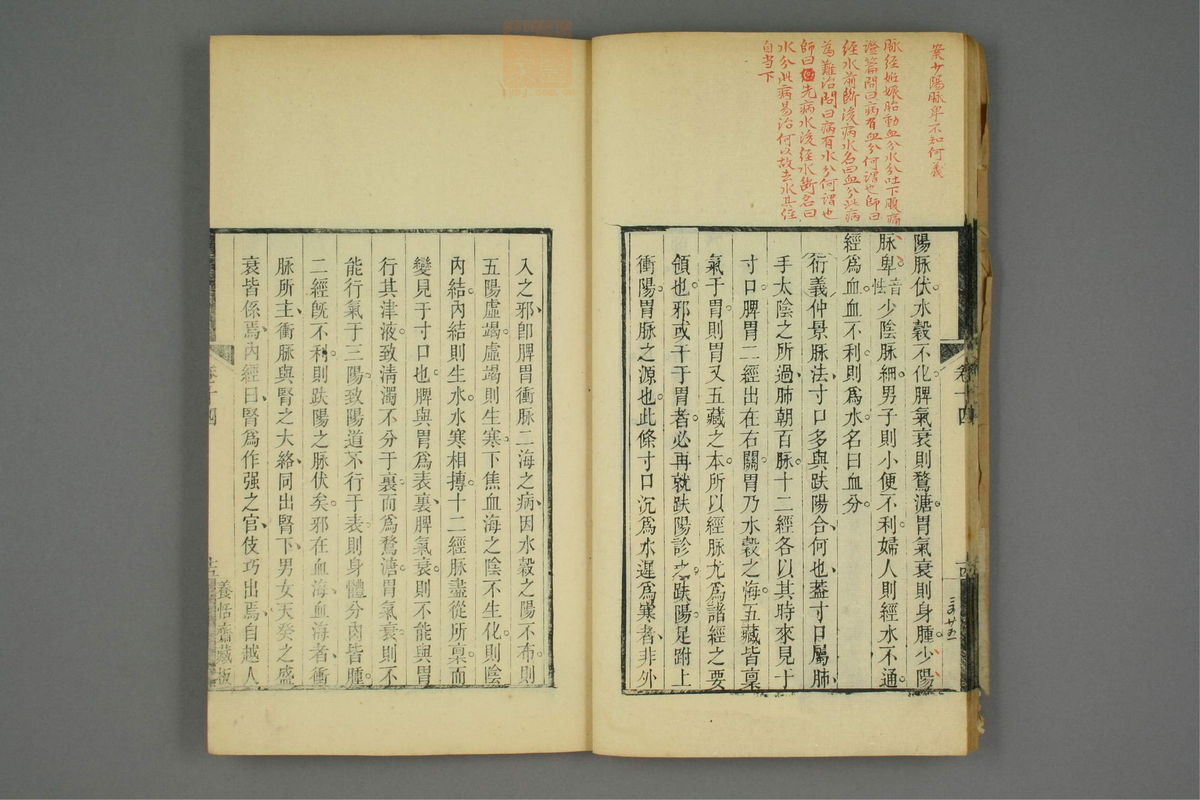 案少陽脉卑不知何義
脉經姙娠胎動血分水分吐下腹痛
證篇問曰病有血分何謂也師曰
經水前斷後病水名曰血分此病
為難治問曰病有水分何謂也
師曰先病水後經水斷名曰
水分此病易治何以故去水其經
自當下
陽脉伏水穀不化脾氣衰則鶩溏胃氣衰則身腫少陽
脉卑音怯少陰脉細男子則小便不利婦人則經水不通
經爲血血不利則爲水名曰血分
衍義仲景脉法寸口多與趺陽合何也蓋寸口屬肺
手太陰之所過肺朝百脉十二經各以其時來見于
寸口脾胃二經出在右關胃乃水穀之海五藏皆稟
氣于胃則胃又五藏之本所以經脉尤爲諸經之要
領也邪或干于胃者必再就趺陽診之趺陽足跗上
衝陽胃脉之源也此條寸口沉爲水遲爲寒者非外
卷十四
十四
入之邪卽脾胃衝脉二海之病因水穀之陽不布則
五陽虛竭虛竭則生寒下焦血海之陰不生化則陰
內結內結則生水水寒相摶十二經脉盡從所稟而
變見于寸口也脾與胃爲表裏脾氣衰則不能與胃
行其津液致清濁不分于裏而爲鶩溏胃氣衰則不
能行氣于三陽致陽道不行于表則身體分肉皆腫
二經旣不利則趺陽之脉伏矣邪在血海血海者衝
脉所主衝脉與腎之大絡同出腎下男女天癸之盛
衰皆係焉內經曰腎爲作强之官伎巧出焉自越人
卷十四
養恬齋藏板